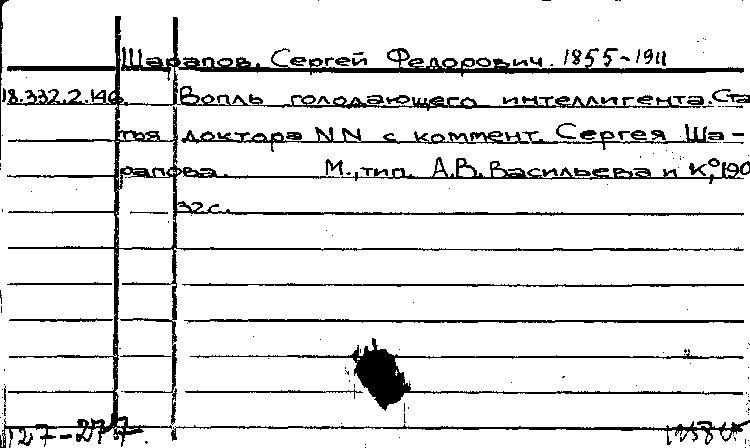 Шарапов, Сергей Федорович. 1855-1911
18.332.2.146. Вопль голодающего интеллигента. Ста
тья доктора NN с коммент. Сергея Ша-
рапова. М., тип. А.В. Васильева и К°, 190
32с.
127-277.